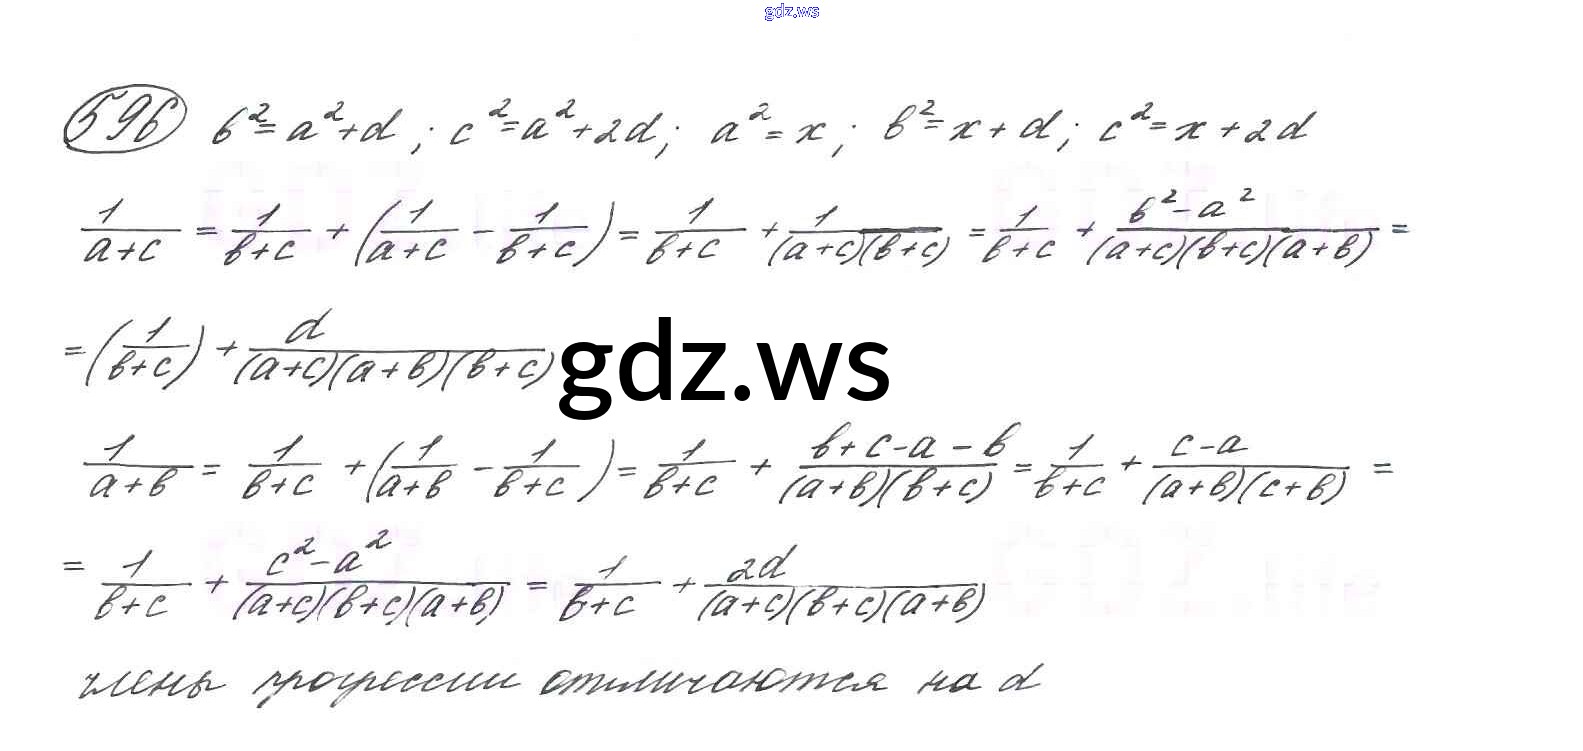 gdz.ws
596 b²=a²+d; c²=a²+2d; a²=x; b²=x+d; c²=x+2d
1/(a+c) = 1/(b+c) + (1/(a+c) - 1/(b+c)) = 1/(b+c) + 1/((a+c)(b+c)) = 1/(b+c) + (b²-a²)/((a+c)(b+c)(a+b)) =
= (1/(b+c)) + d/((a+c)(a+b)(b+c))
gdz.ws
1/(a+b) = 1/(b+c) + (1/(a+b) - 1/(b+c)) = 1/(b+c) + (b+c-a-b)/((a+b)(b+c)) = 1/(b+c) + (c-a)/((a+b)(c+b)) =
= 1/(b+c) + (c²-a²)/((a+c)(b+c)(a+b)) = 1/(b+c) + 2d/((a+c)(b+c)(a+b))
члены прогрессии отличаются на d